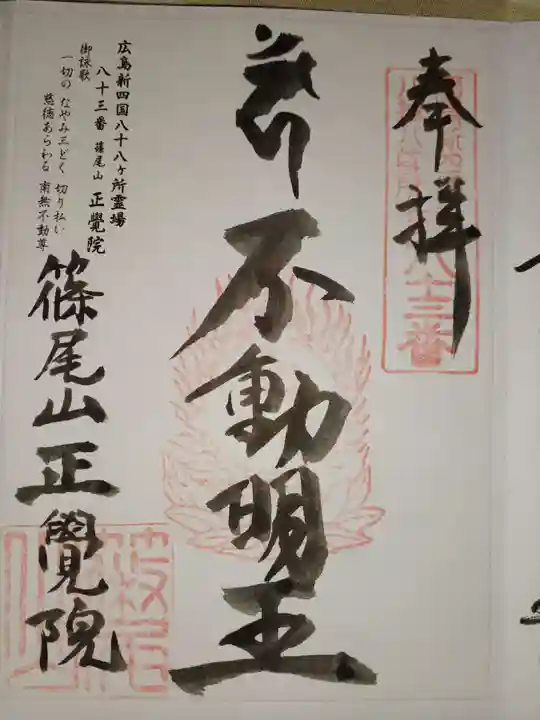 奉拝
八十三番
不動明王
広島新四国八十八ヶ所霊場
八十三番 篠尾山 正覺院
御詠歌
一切の なやみ三どく 切り払い
慈徳あらわる 南無不動尊
篠尾山正覺院